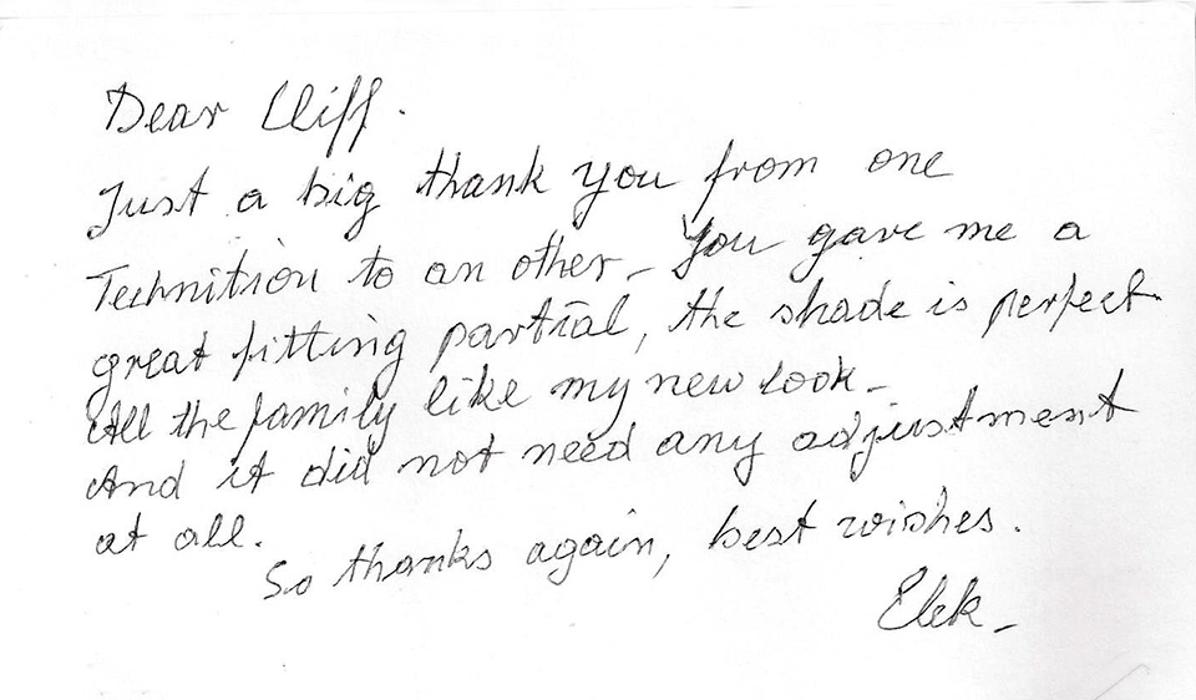 Dear Cliff.
Just a big thank you from one
Technition to an other_ You gave me a
great fitting partial, the shade is perfect
All the family like my new look_
And it did not need any adjustment
at all.
So thanks again, best wishes.
Elek_